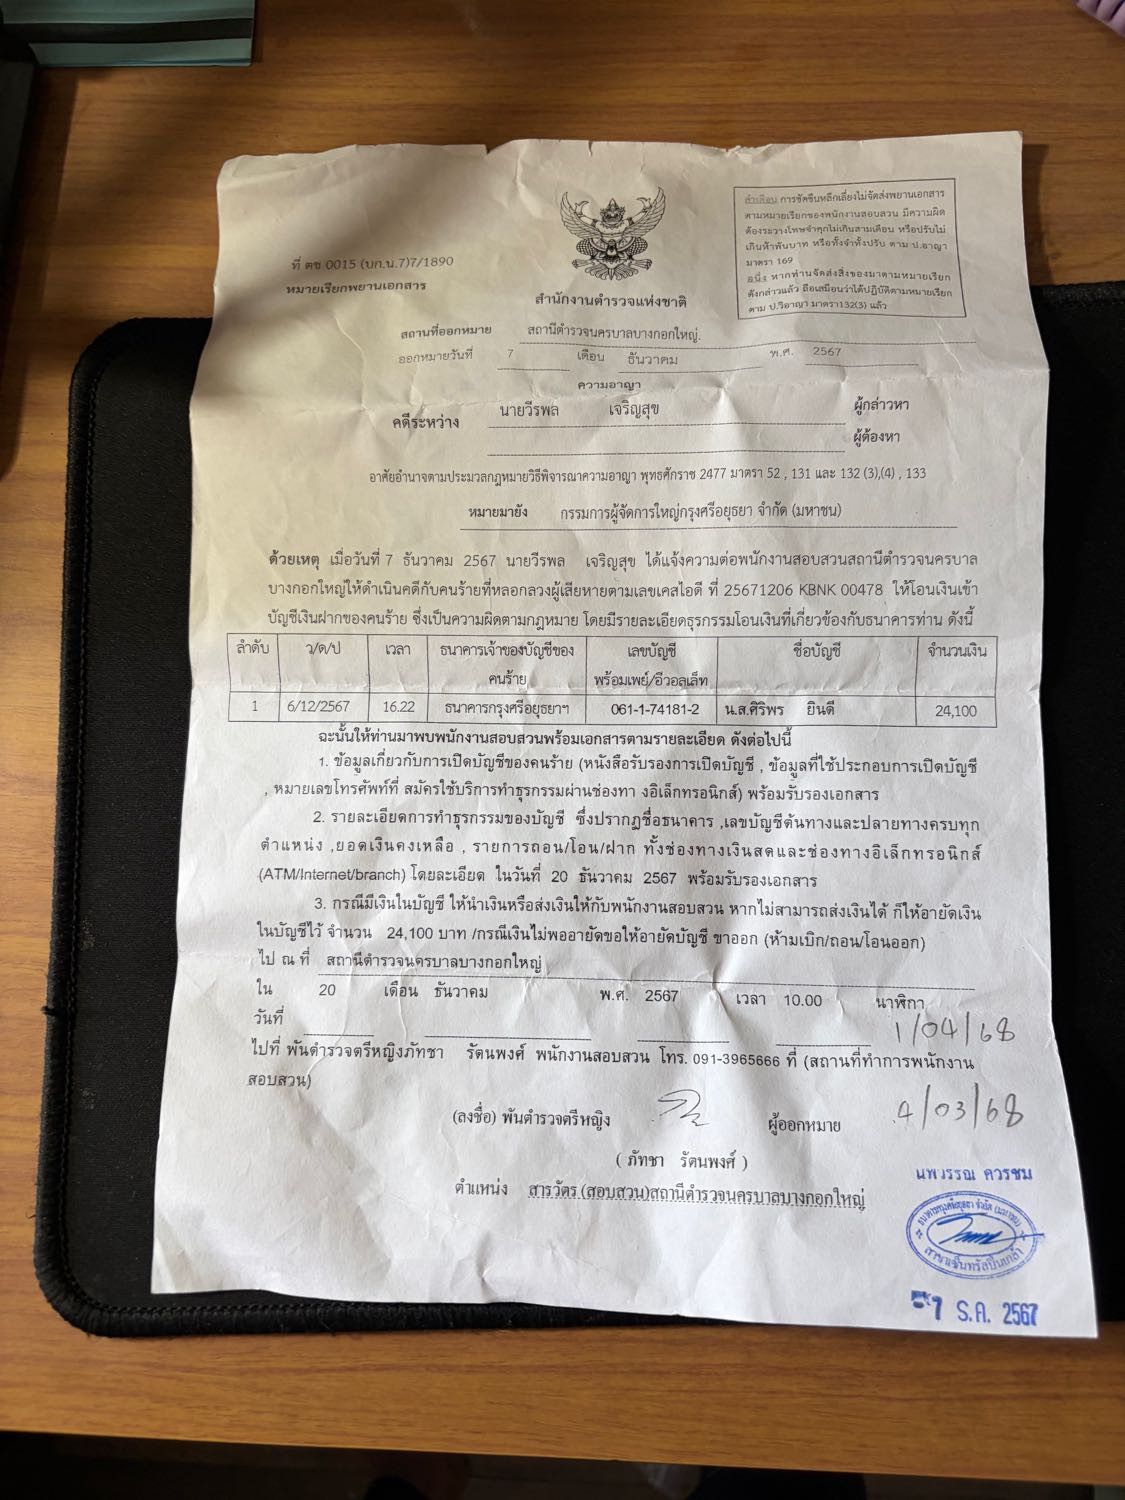 คำเตือน การขัดขืนหลีกเลี่ยงไม่จัดส่งพยานเอกสาร
ตามหมายเรียกของพนักงานสอบสวน มีความผิด
ต้องระวางโทษจำคุกไม่เกินสามเดือน หรือปรับไม่
เกินห้าพันบาท หรือทั้งจำทั้งปรับ ตาม ป.อาญา
มาตรา 169
อนึ่ง หากท่านจัดส่งสิ่งของมาตามหมายเรียก
ดังกล่าวแล้ว ถือเสมือนว่าได้ปฏิบัติตามหมายเรียก
ตาม ป.วิอาญา มาตรา132(3) แล้ว
ที่ ตช 0015 (บก.น.7)7/1890
หมายเรียกพยานเอกสาร
สำนักงานตำรวจแห่งชาติ
สถานที่ออกหมาย สถานีตำรวจนครบาลบางกอกใหญ่.
ออกหมายวันที่ 7 เดือน ธันวาคม พ.ศ. 2567
ความอาญา
คดีระหว่าง นายวีรพล เจริญสุข ผู้กล่าวหา
ผู้ต้องหา
อาศัยอำนาจตามประมวลกฎหมายวิธีพิจารณาความอาญา พุทธศักราช 2477 มาตรา 52 , 131 และ 132 (3),(4) , 133
หมายมายัง กรรมการผู้จัดการใหญ่กรุงศรีอยุธยา จำกัด (มหาชน)
ด้วยเหตุ เมื่อวันที่ 7 ธันวาคม 2567 นายวีรพล เจริญสุข ได้แจ้งความต่อพนักงานสอบสวนสถานีตำรวจนครบาล
บางกอกใหญ่ให้ดำเนินคดีกับคนร้ายที่หลอกลวงผู้เสียหายตามเลขเคสไอดี ที่ 25671206 KBNK 00478 ให้โอนเงินเข้า
บัญชีเงินฝากของคนร้าย ซึ่งเป็นความผิดตามกฎหมาย โดยมีรายละเอียดธุรกรรมโอนเงินที่เกี่ยวข้องกับธนาคารท่าน ดังนี้
ลำดับ ว/ด/ป เวลา ธนาคารเจ้าของบัญชีของ เลขบัญชี ชื่อบัญชี จำนวนเงิน
คนร้าย พร้อมเพย์/อีวอลเล็ท
1 6/12/2567 16.22 ธนาคารกรุงศรีอยุธยาฯ 061-1-74181-2 น.ส.ศิริพร ยินดี 24,100
ฉะนั้นให้ท่านมาพบพนักงานสอบสวนพร้อมเอกสารตามรายละเอียด ดังต่อไปนี้
1. ข้อมูลเกี่ยวกับการเปิดบัญชีของคนร้าย (หนังสือรับรองการเปิดบัญชี , ข้อมูลที่ใช้ประกอบการเปิดบัญชี
, หมายเลขโทรศัพท์ที่ สมัครใช้บริการทำธุรกรรมผ่านช่องทา งอิเล็กทรอนิกส์) พร้อมรับรองเอกสาร
2. รายละเอียดการทำธุรกรรมของบัญชี ซึ่งปรากฏชื่อธนาคาร ,เลขบัญชีต้นทางและปลายทางครบทุก
ตำแหน่ง ,ยอดเงินคงเหลือ , รายการถอน/โอน/ฝาก ทั้งช่องทางเงินสดและช่องทางอิเล็กทรอนิกส์
(ATM/Internet/branch) โดยละเอียด ในวันที่ 20 ธันวาคม 2567 พร้อมรับรองเอกสาร
3. กรณีมีเงินในบัญชี ให้นำเงินหรือส่งเงินให้กับพนักงานสอบสวน หากไม่สามารถส่งเงินได้ ก็ให้อายัดเงิน
ในบัญชีไว้ จำนวน 24,100 บาท /กรณีเงินไม่พออายัดขอให้อายัดบัญชี ขาออก (ห้ามเบิก/ถอน/โอนออก)
ไป ณ ที่ สถานีตำรวจนครบาลบางกอกใหญ่
ใน 20 เดือน ธันวาคม พ.ศ. 2567 เวลา 10.00 นาฬิกา
วันที่
1/04/68
ไปที่ พันตำรวจตรีหญิงภัทชา รัตนพงศ์ พนักงานสอบสวน โทร. 091-3965666 ที่ (สถานที่ทำการพนักงาน
สอบสวน)
(ลงชื่อ) พันตำรวจตรีหญิง ผู้ออกหมาย
4/03/68
( ภัทชา รัตนพงศ์ )
ตำแหน่ง สารวัตร (สอบสวน)สถานีตำรวจนครบาลบางกอกใหญ่
นพวรรณ ควรชม
ธนาคารกรุงศรีอยุธยา จำกัด (มหาชน)
สาขาเซ็นทรัลปิ่นเกล้า
7 ธ.ค. 2567